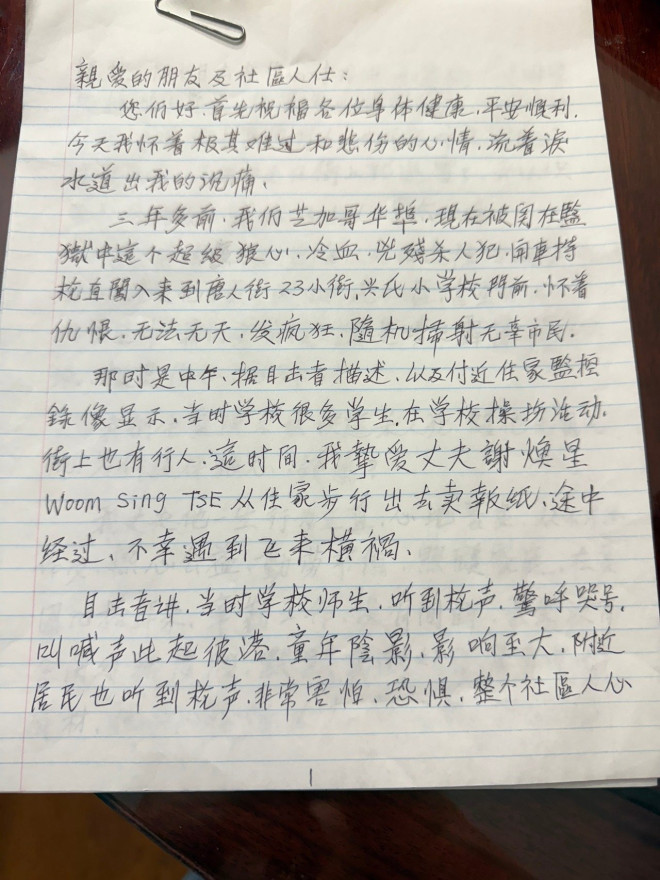 親爱的朋友及社區人仕：
您们好，首先祝福各位身体健康，平安顺利，
今天我怀着极其难过和悲伤的心情，流着淚
水道出我的沉痛、
三年多前，我们芝加哥华埠，現在被関在監
獄中這个超级狠心，冷血，兇殘杀人犯，開車持
枪直闖入来到唐人街23小街，兴氏小学校門前，怀着
仇恨，无法无天，发疯狂，隨机掃射无辜市民，
那时是中午，据目击者描述，以及付近住家監控
錄像显示，当时学校很多学生，在学校操场活动，
街上也有行人，這时间，我摯爱丈夫謝煥星
Woom Sing TSE 从住家步行出去卖報紙、途中
经过、不幸遇到飞来橫禍、
目击者讲，当时学校师生，听到枪声，驚呼哭号，
叫喊声此起彼落，童年陰影，影响至大，附近
居民也听到枪声，非常害怕，恐惧，整个社區人心
1